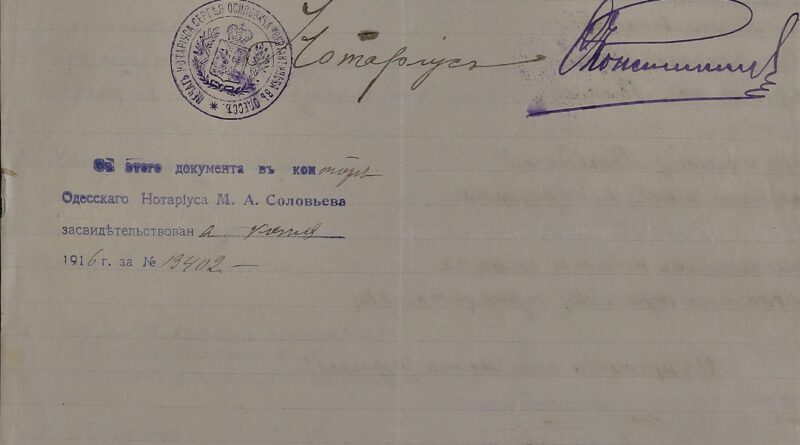 ПЕЧАТЬ НОТАРІУСА СЕРГѢЯ ОСИПОВИЧА ВЪ ОДЕССѢ
Нотаріусъ
Съ этого документа въ конторѣ
Одесскаго Нотаріуса М. А. Соловьева
засвидѣтельствована копія
1916 г. за № 19402